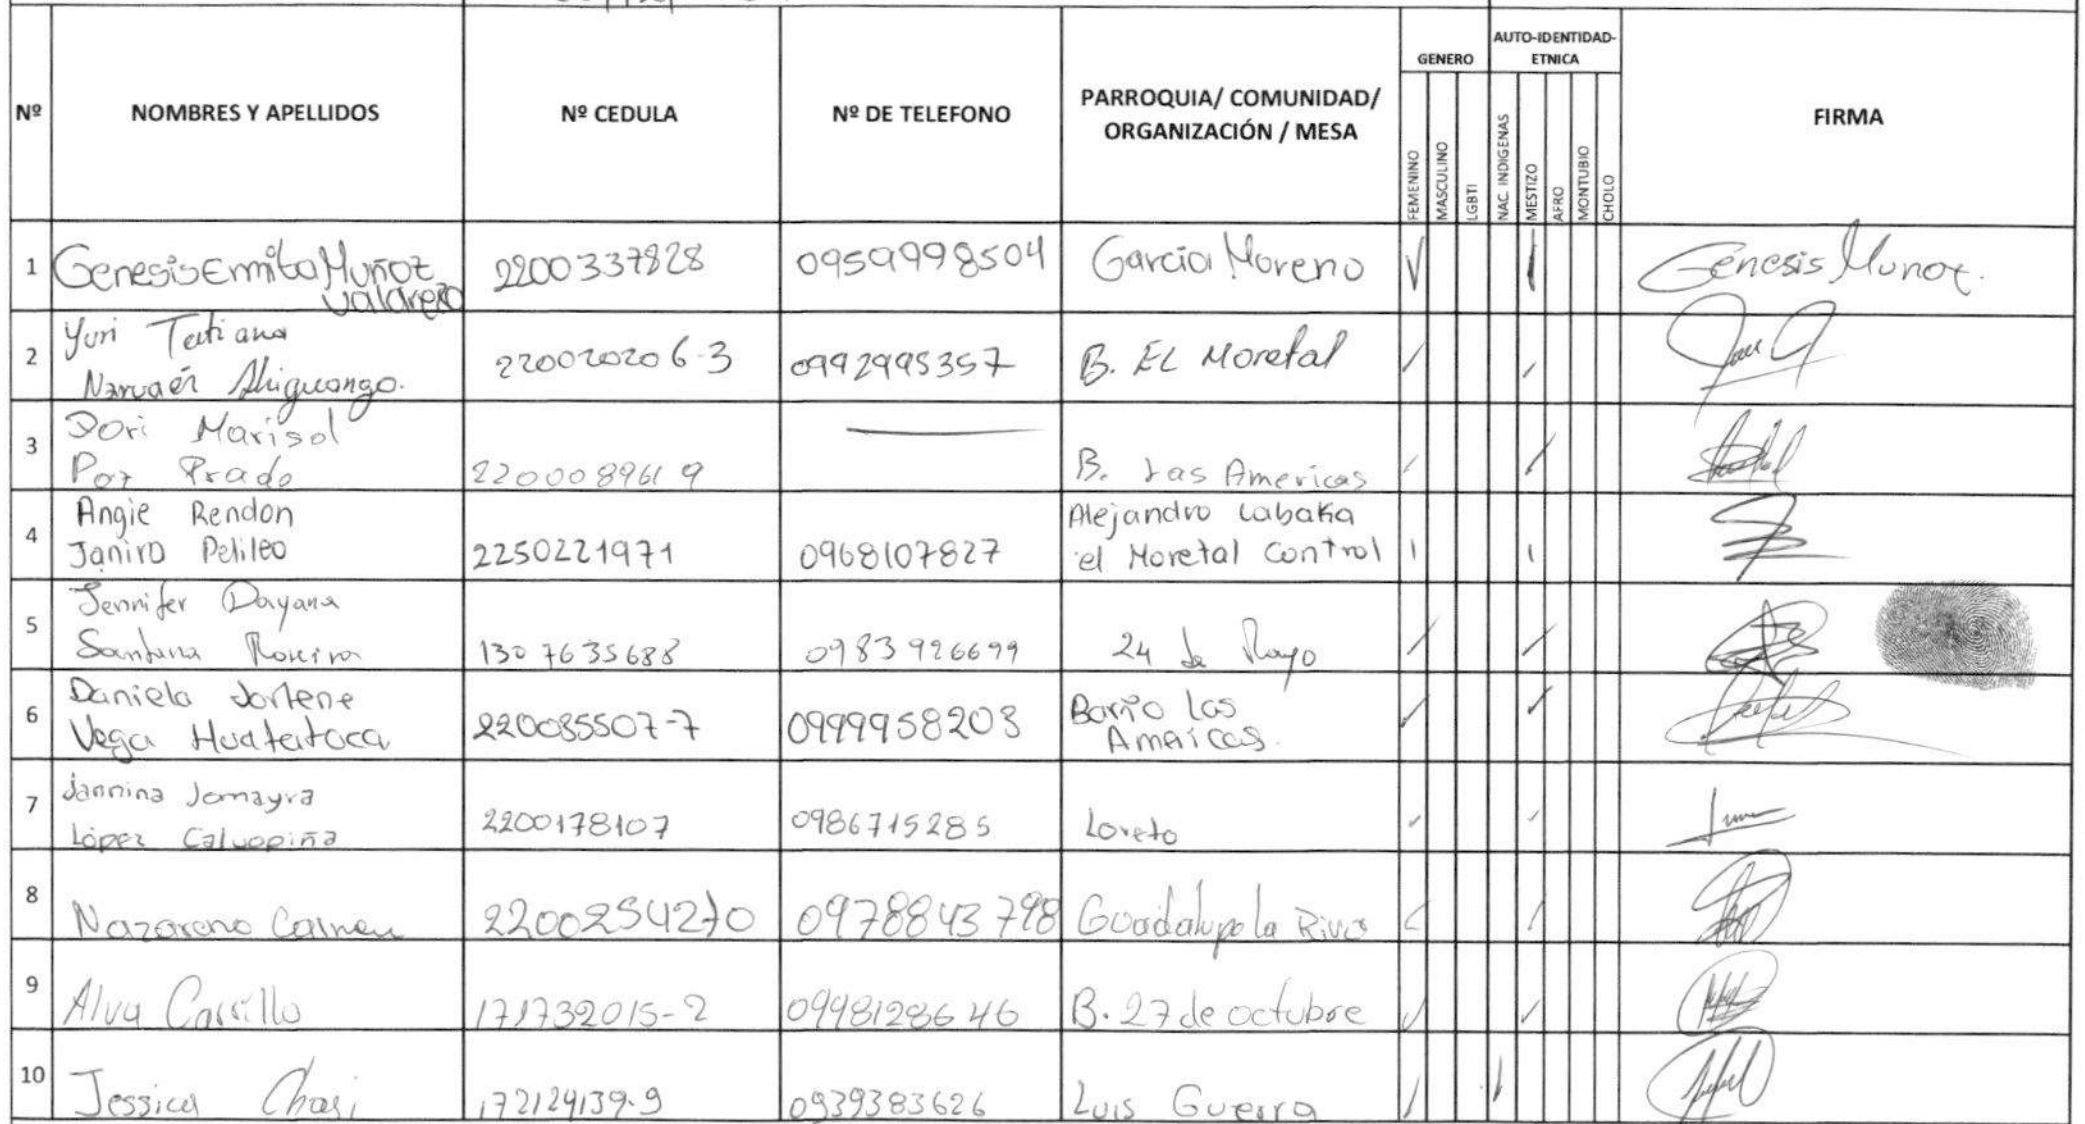 Nº NOMBRES Y APELLIDOS Nº CEDULA Nº DE TELEFONO PARROQUIA/ COMUNIDAD/ ORGANIZACIÓN / MESA GENERO AUTO-IDENTIDAD-ETNICA FIRMA
FEMENINO MASCULINO LGBTI NAC. INDIGENAS MESTIZO AFRO MONTUBIO CHOLO
1 Genesis Emilia Muñoz Valarezo 2200337828 0959998504 Garcia Moreno Genesis Munoz.
2 Yuri Tatiana
Narvaéz Shiguango. 220020206-3 0992995357 B. EL Moretal
3 Dori Marisol
Paz Prado 2200089619 B. Las Americas
4 Angie Rendon
Janira Pelileo 2250221971 0968107827 Alejandro Labaka
el Moretal Control
5 Jennifer Dayana
Santana 1307635688 0983926699 24 de Mayo
6 Daniela Jorlene
Vega Huatatoca 220085507-7 0999958203 Barrio las
Americas.
7 Jannina Jomayra
López Calvopiña 2200178107 0986715285 Loreto
8 Nazareno Carmen 2200254270 0978843798 Guadalupe la Riva
9 Alva Carrillo 171732015-2 0998128646 B. 27 de octubre
10 Jessica Chasi 172124139-9 0939383626 Luis Guerra